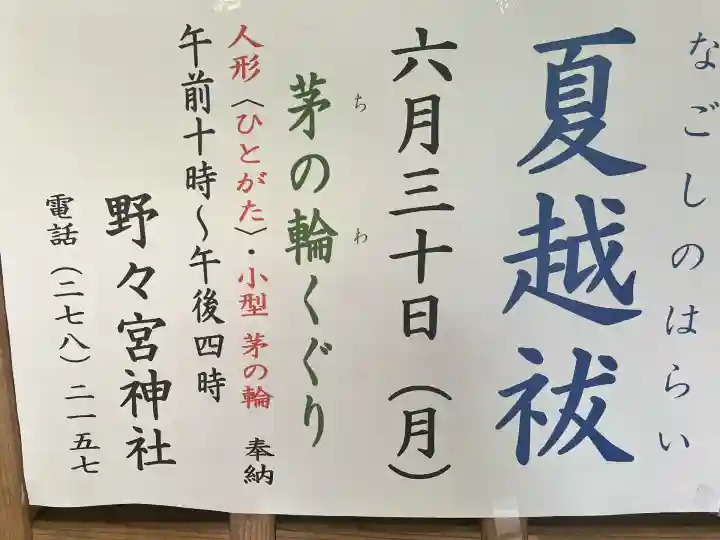 なごしのはらい
夏越祓
六月三十日（月）
ちわ
茅の輪くぐり
人形〈ひとがた〉・小型 茅の輪 奉納
午前十時〜午後四時
野々宮神社
電話（二七八）二一五七